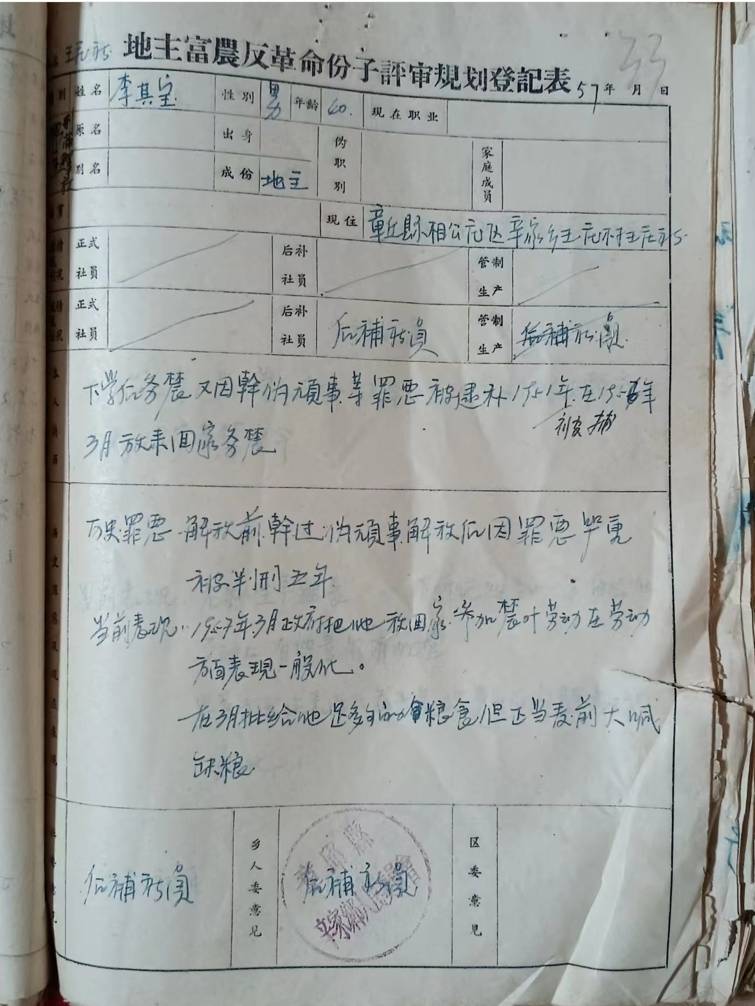 地主富農反革命份子評审規划登記表 57年 月 日
姓名 李其宝 性别 男 年龄 60. 现在职业
原名 出身 伪职别 家庭成員
别名 成份 地主
现住 章丘縣相公庄区辛家乡王庄村王庄社
正式社員 后补社員 管制生产
正式社員 后补社員 后補社員 管制生产 后補社員
下学后务農又因幹伪頑事等罪悪被逮补1951年在195 年
被捕
3月放来回家务農
历史罪悪 解放前幹过伪頑事解放后因罪悪
被判刑五年
当前表现 1957年3月政府把他放回家参加農叶劳动在劳动
方面表現一般化。
在3月批给他足够 粮食但正当麦前大喊
缺粮
后補社員 乡人委意见 后補社員 区委意见